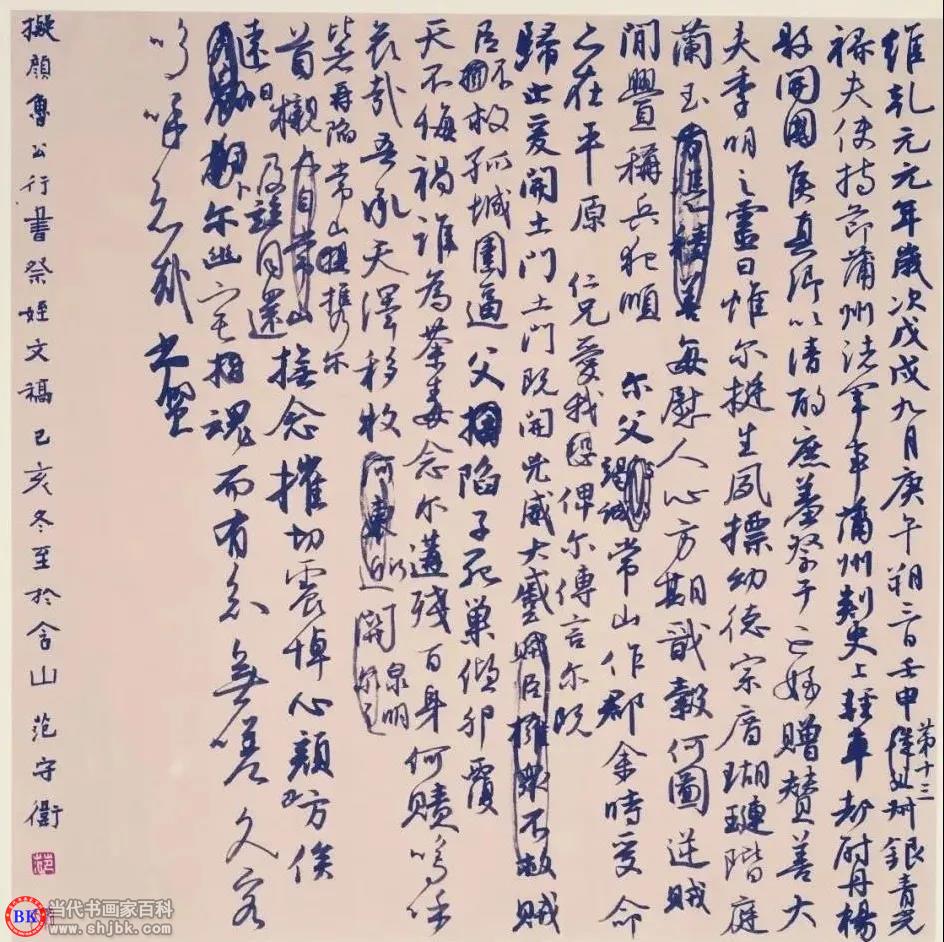 維乾元元年歲次戊戌九月庚午朔三日壬申第十三從父叔銀青光
祿夫使持節蒲州諸軍事蒲州刺史上輕車都尉丹楊
縣開國侯真卿以清酌庶羞祭于亡姪贈贊善大
夫季明之靈曰惟爾挺生夙標幼德宗廟瑚璉階庭
蘭玉積善每慰人心方期戩穀何圖逆賊
閒釁稱兵犯順 爾父竭誠常山作郡余時受命
亦在平原 仁兄愛我恐俾爾傳言爾既
歸止爰開土門土門既開凶威大蹙賊臣擁眾不救賊
臣不救孤城圍逼父陷子死巢傾卵覆
天不悔禍誰為荼毒念爾遘殘百身何贖嗚呼
哀哉吾承天澤移牧河東近河關泉明爾之
比者再陷常山攜爾
首櫬及自常山撫念摧切震悼心顏方俟
遠日及茲同還
卜爾幽宅魂而有知無嗟久客
嗚呼哀哉尚饗
擬顏魯公行書祭姪文稿己亥冬至於含山范守衡
范
BK
当代书画家百科
www.shjbk.com